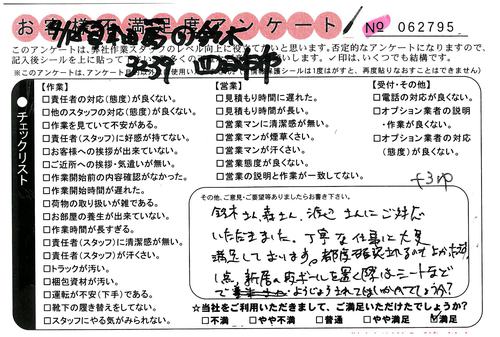 お客様不満足度アンケート
№ 062795
このアンケートは、弊社作業スタッフのレベル向上に役立てたいと思います。否定的なアンケートになりますので、
記入後シールを上に貼って
✓印は、いくつでも結構です。
【作業】
□責任者の対応(態度)が良くない。
□他のスタッフの対応(態度)が良くない。
□作業を見ていて不安がある。
□責任者(スタッフ)に好感が持てない。
□お客様への挨拶が出来ていない。
□ご近所への挨拶・気遣いが無い。
□作業開始前の内容確認がなかった。
□作業開始時間が遅れた。
□荷物の取り扱いが雑である。
□お部屋の養生が出来ていない。
□作業時間が長すぎる。
□責任者(スタッフ)に清潔感が無い。
□責任者(スタッフ)が汗くさい。
□トラックが汚い。
□梱包資材が汚い。
□運転が不安(下手)である。
□靴下の履き替えをしてない。
□スタッフにやる気がみられない。
【営業】
□見積もり時間に遅れた。
□見積もり時間が長い。
□営業マンに清潔感が無い。
□営業マンが煙草くさい。
□営業マンが汗くさい。
□営業態度が良くない。
□営業の説明と作業が一致してない。
【受付・その他】
□電話の対応が良くない。
□オプション業者の説明
・作業が良くない。
□オプション業者の対応
(態度)が良くない。
チェックリスト
その他、ご意見・ご要望等ありましたらお書き下さい。
鈴木さん、森さん、渡辺さんにご対応
いただきました。丁寧な仕事に大変
満足しております。
1点、新居の段ボールを置く際はシートなど
で
☆当社をご利用いただきまして、ご満足いただけたでしょうか?
□不満 □やや不満 □普通 □やや満足 ☑満足